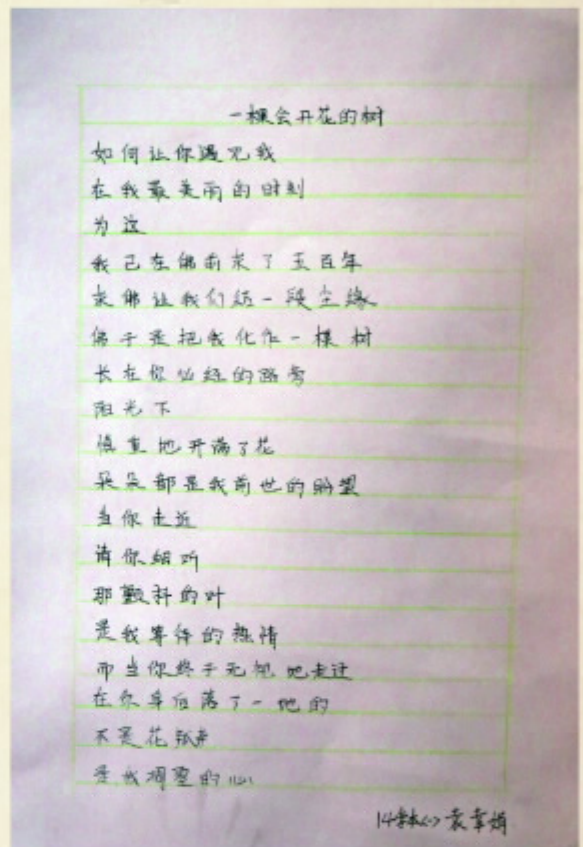 一棵会开花的树
如何让你遇见我
在我最美丽的时刻
为这
我已在佛前求了五百年
求佛让我们结一段尘缘
佛于是把我化作一棵树
长在你必经的路旁
阳光下
慎重地开满了花
朵朵都是我前世的盼望
当你走近
请你细听
那颤抖的叶
是我等待的热情
而当你终于无视地走过
在你身后落了一地的
不是花瓣
是我凋零的心
14学本(2) 袁幸娟